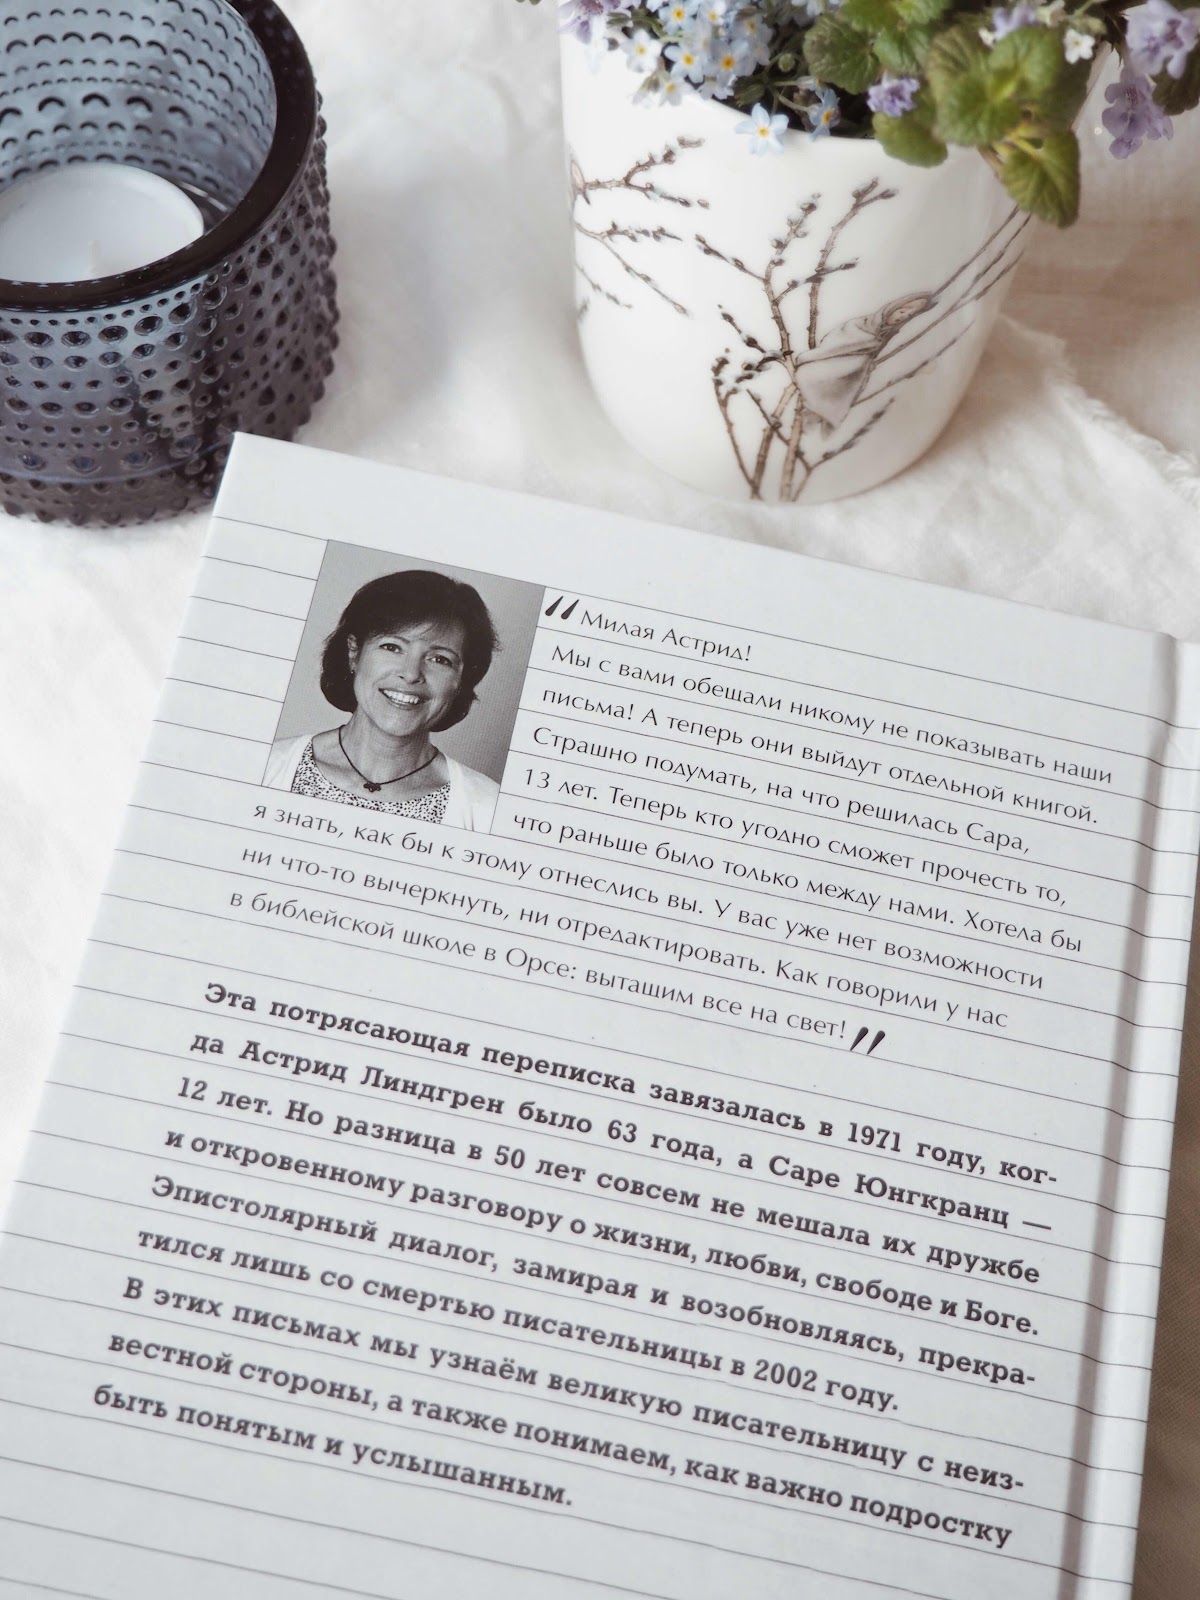 "Милая Астрид!
Мы с вами обещали никому не показывать наши
письма! А теперь они выйдут отдельной книгой.
Страшно подумать, на что решилась Сара,
13 лет. Теперь кто угодно сможет прочесть то,
что раньше было только между нами. Хотела бы
я знать, как бы к этому отнеслись вы. У вас уже нет возможности
ни что-то вычеркнуть, ни отредактировать. Как говорили у нас
в библейской школе в Орсе: вытащим все на свет!"
Эта потрясающая переписка завязалась в 1971 году, ког-
да Астрид Линдгрен было 63 года, а Саре Юнгкранц —
12 лет. Но разница в 50 лет совсем не мешала их дружбе
и откровенному разговору о жизни, любви, свободе и Боге.
Эпистолярный диалог, замирая и возобновляясь, прекра-
тился лишь со смертью писательницы в 2002 году.
В этих письмах мы узнаём великую писательницу с неиз-
вестной стороны, а также понимаем, как важно подростку
быть понятым и услышанным.